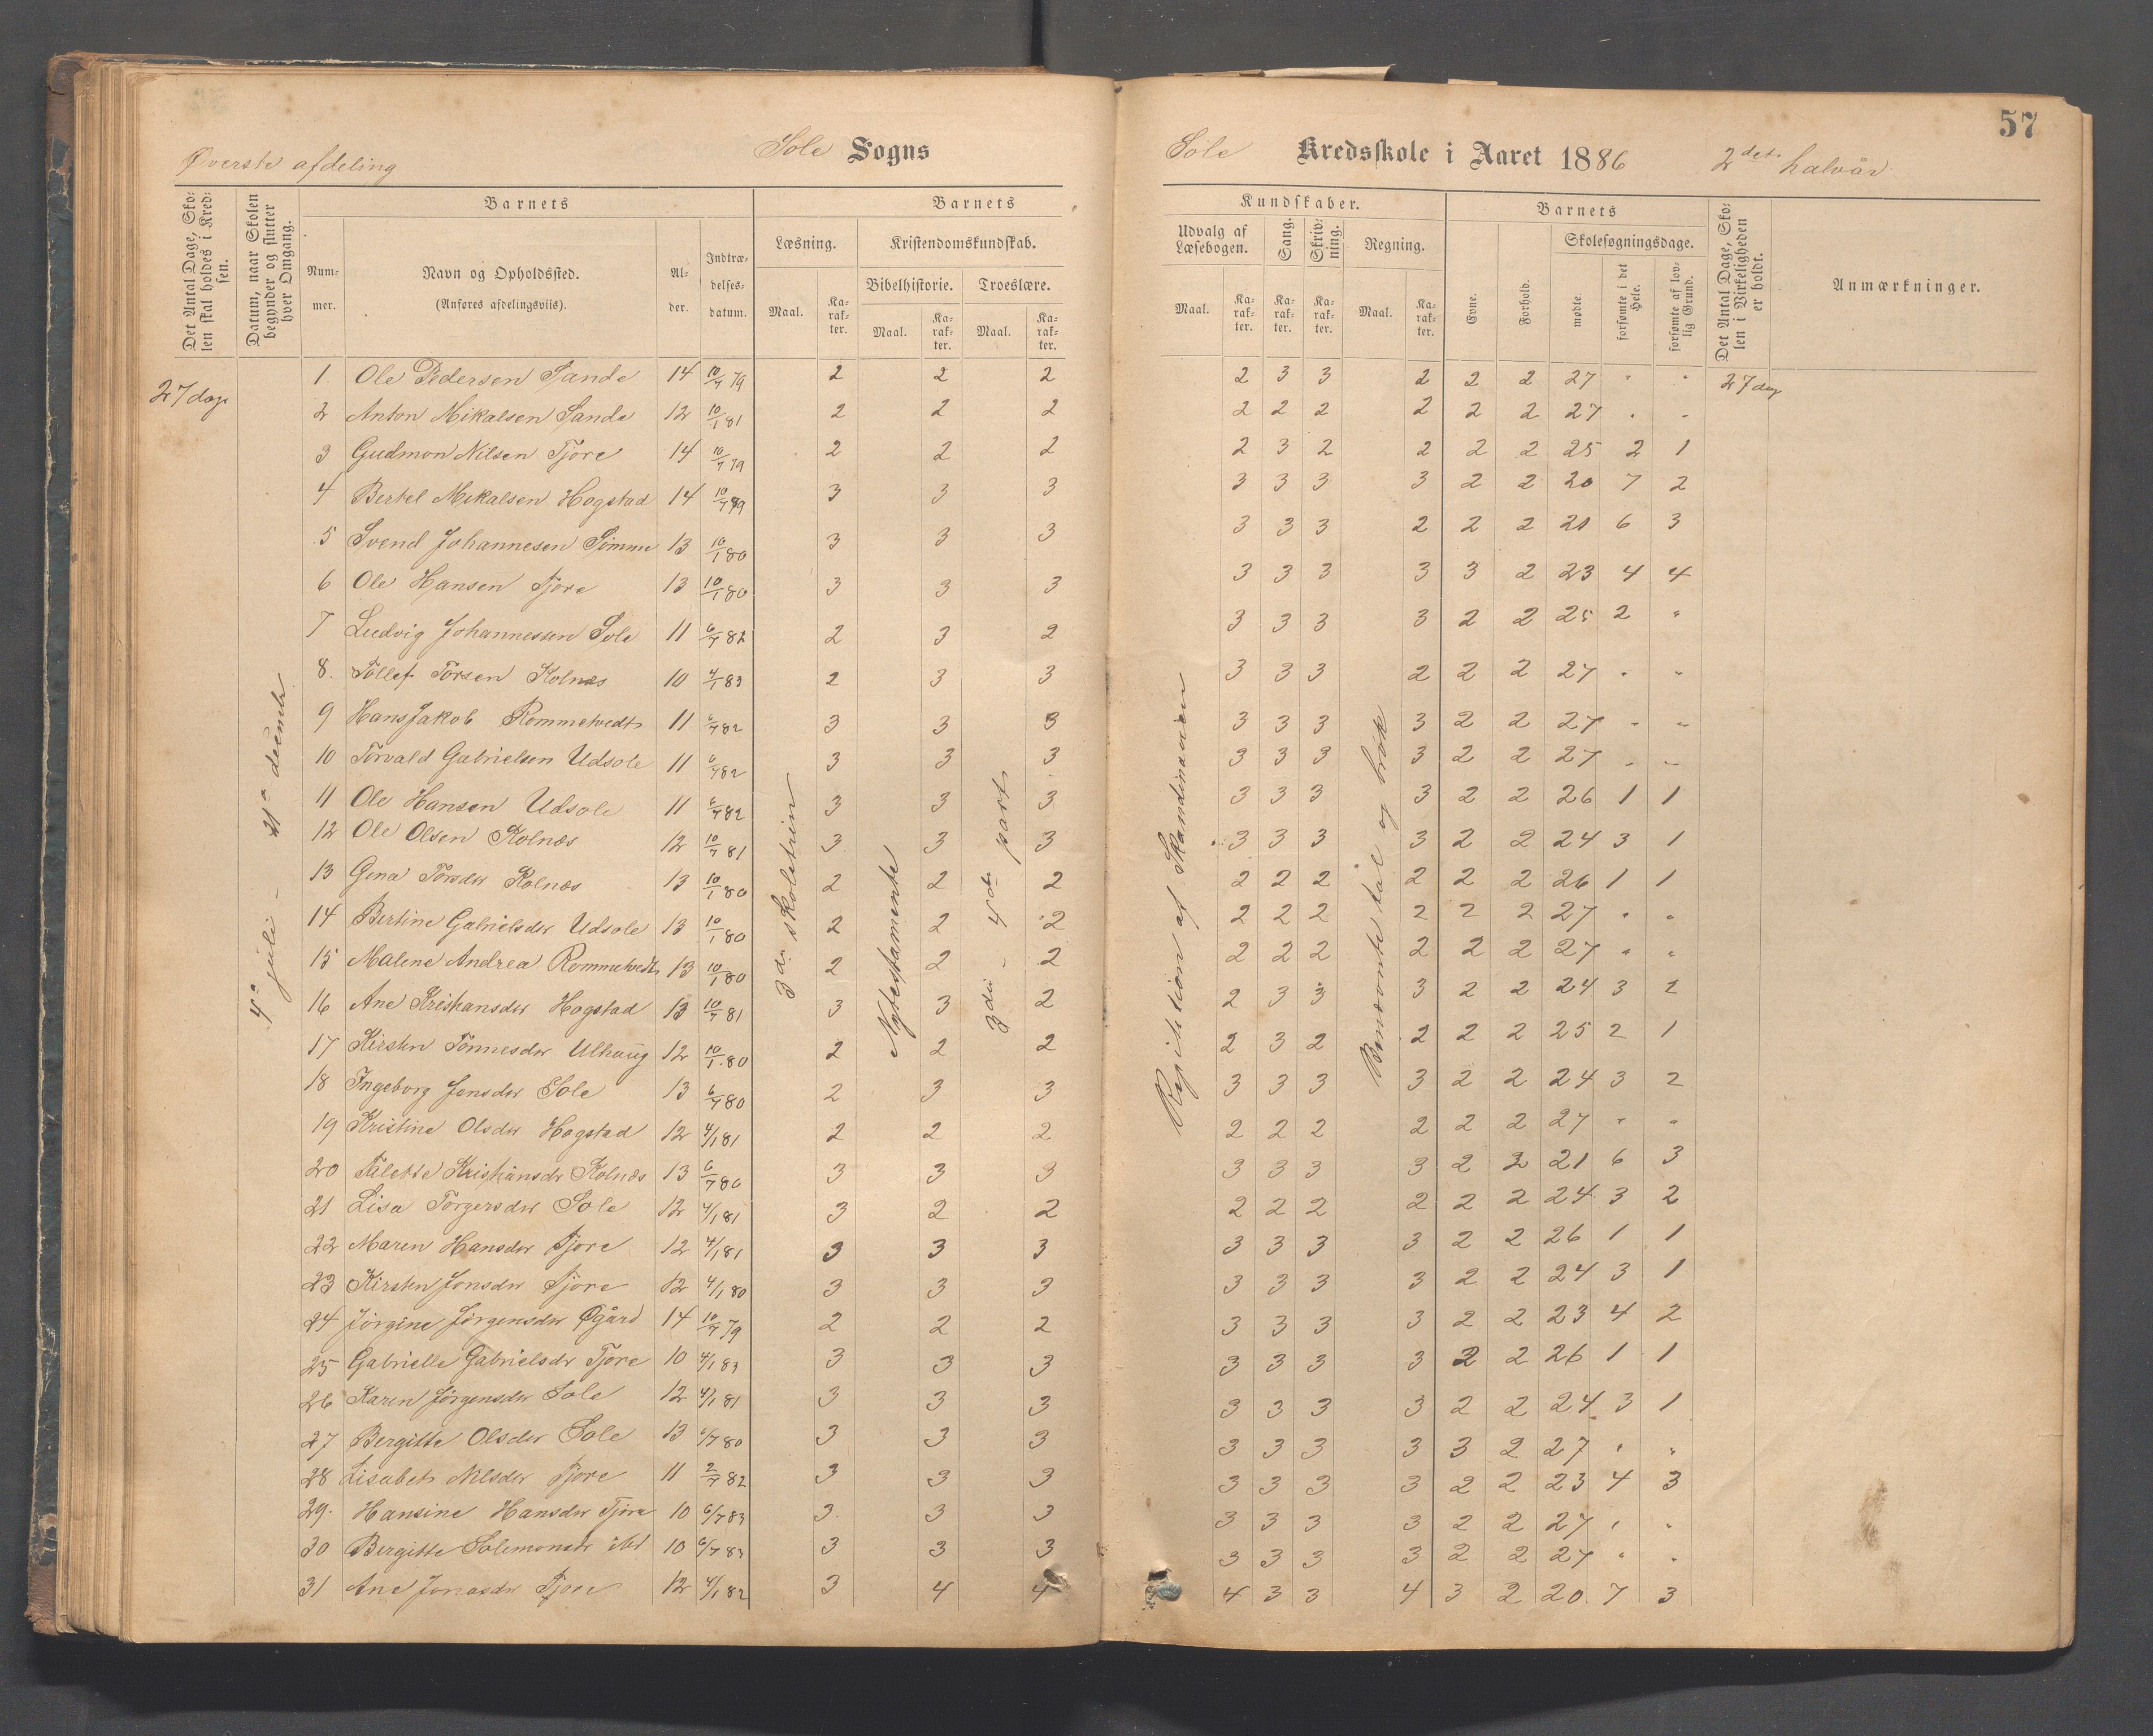 57
Øverste afdeling
Sole Sogns
Sole Kredsskole i Aaret 1886 2det halvår
Det Antal Dage, Skolen skal holdes i Kredsen.
Datum, naar Skolen begynder og slutter hver Omgang.
Barnets
Nummer.
Navn og Opholdssted.
(Anføres afdelingsviis).
Alder.
Indtrædelsesdatum.
Barnets
Kundskaber.
Læsning.
Kristendomskundskab.
Bibelhistorie.
Troeslære.
Maal.
Karakter.
Maal.
Karakter.
Maal.
Karakter.
Udvalg af Læsebogen.
Sang.
Skrivning.
Regning.
Maal.
Karakter.
Karakter.
Karakter.
Maal.
Karakter.
Barnets
Evne.
Forhold.
Skolesøgningsdage.
mødte.
forsømte i det Hele.
forsømte af lovlig Grund.
Det Antal Dage, Skolen i Virkeligheden er holdt.
Anmærkninger.
27 dage
4de juli - 21de decembr
3die skoletrin
Nytestamente
3die - 4de part
Repitition af Skandinavien
Benævnte tal og brøk
27 dage
1. Ole Pedersen Sande 14 10/7 79 2 2 2 2 3 3 2 2 2 27 " "
2 Anton Mikalsen Sande 12 10/1 81 2 2 2 2 2 2 2 2 2 27 " "
3 Gudmon Nilsen Tjore 14 10/7 79 2 2 2 2 3 2 2 2 2 25 2 1
4 Bertel Mikalsen Hogstad 14 10/7 79 3 3 3 3 3 3 3 2 2 20 7 2
5 Svend Johannesen Sømme 13 10/1 80 3 3 3 3 3 3 2 2 2 21 6 3
6 Ole Hansen Tjore 13 10/1 80 3 3 3 3 3 3 3 3 2 23 4 4
7 Ludvig Johannessen Sole 11 6/7 82 2 3 2 3 3 3 3 2 2 25 2 "
8. Tollef Torsen Kolnæs 10 4/1 83 2 3 3 3 3 3 2 2 2 27 " "
9 Hans Jakob Rommetvedt 11 6/7 82 3 3 3 3 3 3 3 2 2 27 " "
10 Torvald Gabrielsen Udsole 11 6/7 82 3 3 3 3 3 3 3 2 2 27 " "
11 Ole Hansen Udsole 11 6/7 82 3 3 3 3 3 3 3 2 2 26 1 1
12 Ole Olsen Kolnæs 12 10/7 81 3 3 3 3 3 3 3 2 2 24 3 1
13 Gina Torsdtr Kolnæs 13 10/1 80 2 2 2 2 2 2 2 2 2 26 1 1
14 Bertine Gabrielsdtr Udsole 13 10/1 80 2 2 2 2 2 2 2 2 2 27 " "
15 Malene Andrea Rommetvedt 13 10/1 80 2 2 2 2 2 2 2 2 2 27 " "
16 Ane Kristiansdtr Hogstad 13 10/7 81 3 3 2 2 3 3 3 2 2 24 3 2
17 Kirsten Tønnesdtr Ulhaug 12 10/1 80 2 2 2 2 3 2 2 2 2 25 2 1
18 Ingeborg Jonsdtr Sole 13 6/7 80 2 3 3 3 3 3 3 2 2 24 3 2
19 Kristine Olsdtr Hogstad 12 4/1 81 2 2 2 2 2 2 2 2 2 27 " "
20 Talette Kristiansdr Kolnæs 13 6/7 80 3 3 3 3 3 3 3 2 2 21 6 3
21 Lisa Torgersdtr Sole 12 4/1 81 3 2 2 2 2 2 2 2 2 24 3 2
22 Maren Hansdtr Tjore 12 4/1 81 3 3 3 3 3 3 3 2 2 26 1 1
23 Kirsten Jonsdtr Tjore 12 4/1 80 3 3 3 3 3 3 3 2 2 24 3 1
24 Jørgine Jørgensdtr Øgård 14 10/7 79 2 2 2 3 3 3 3 2 2 23 4 2
25 Gabrielle Gabrielsdr Tjore 10 4/1 83 3 3 3 3 3 3 3 2 2 26 1 1
26 Karen Jørgensdtr Sole 12 4/1 81 3 3 3 3 3 3 3 2 2 24 3 1
27 Bergitte Olsdtr Sole 13 6/7 80 3 3 3 3 3 3 3 3 2 27 " "
28 Lisabet Nilsdtr Tjore 11 2/7 82 3 3 3 3 3 3 3 2 2 23 4 3
29. Hansine Hansdtr Tjore 10 6/7 83 3 3 3 3 3 3 3 2 2 27 " "
30 Bergitte Solemonsdr ibd 10 6/7 83 3 3 3 3 3 3 3 2 2 27 " "
31 Ane Jonasdtr Tjore 12 4/1 82 3 4 4 4 3 3 4 3 2 20 7 3